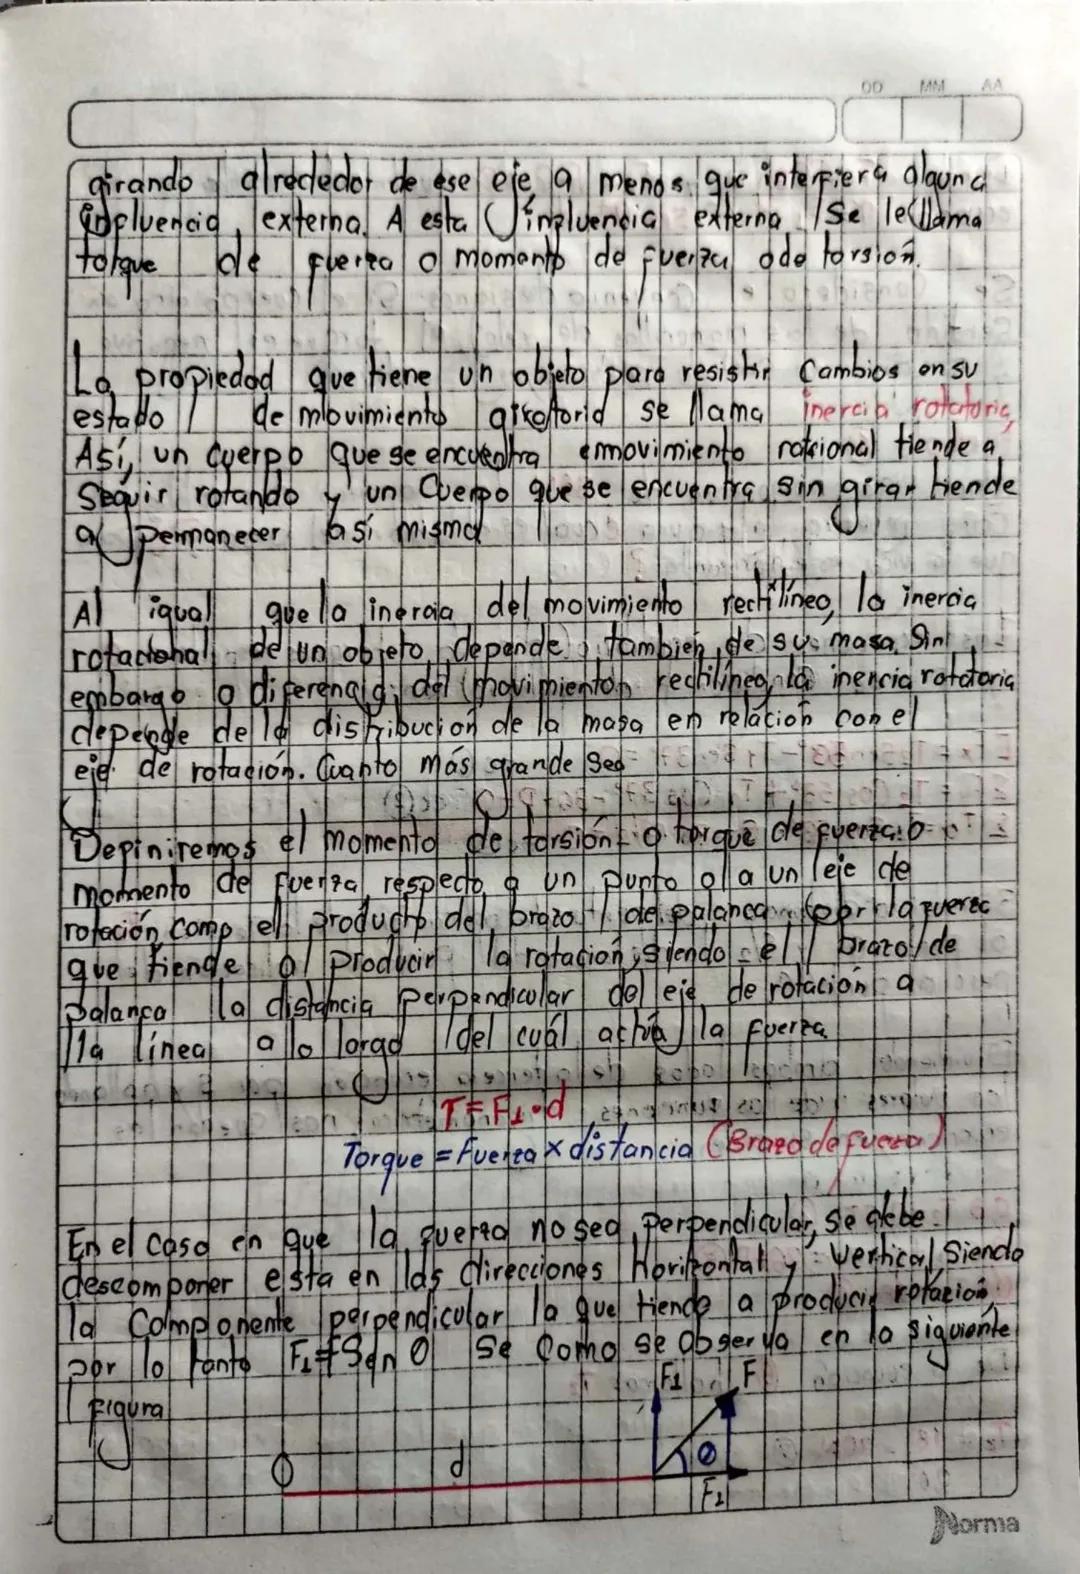 DD MM AA
girando alrededor de ese eje a menos que interfiera alguna
influencia externa. A esta influencia externa se le llama
torque de fuerza o momento de fuerza o de torsión.
La propiedad que tiene un objeto para resistir Cambios en su
estado de movimiento giratorio se llama inercia rotatoria,
Así, un cuerpo que se encuentra en movimiento rotacional tiende a
Seguir rotando y un Cuerpo que se encuentra sin girar tiende
a permanecer así mismo
Al igual que la inercia del movimiento rectilíneo, la inercia
rotacional de un objeto depende también de su masa. Sin
embargo a diferencia del movimiento rectilíneo, la inercia rotatoria
depende de la distribución de la masa en relación con el
eje de rotación. Cuanto más grande sea
Definiremos el momento de torsión o torque de fuerza o
momento de fuerza respecto a un punto o a un eje de
rotación como el producto del brazo de palanca por la fuerza
que tiende a producir la rotación, siendo el brazo de
palanca la distancia perpendicular del eje de rotación a
la línea a lo largo del cuál actúa la fuerza
T = F⊥ • d
Torque = Fuerza x distancia (Brazo de fuerza)
En el caso en que la fuerza no sea perpendicular, se debe
descomponer esta en las direcciones Horizontal y Vertical, Siendo
la Componente perpendicular la que tiende a producir rotación,
por lo tanto F⊥=FSen θ Se Como se observa en la siguiente
figura
F⊥ F
O d θ
F2
Norma